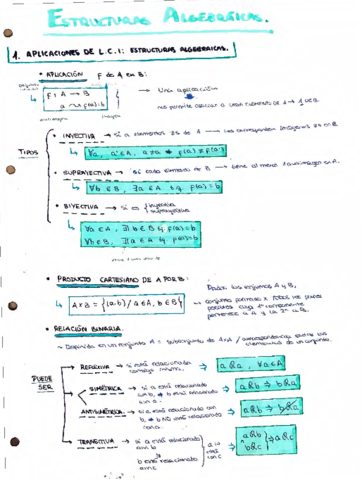 ESTRUCTURAS ALGEBRAICAS.
1. APLICACIONES DE L.C.I: ESTRUCTURAS ALGEBRAICAS.
• APLICACIÓN F de A en B:
F: A → B
a → f(a)=b
Una aplicación
nos permite asociar a cada elemento de A → 1 de B.
TIPOS
• INYECTIVA → si a elementos ≠s de A → les corresponden imágenes ≠s de B
∀a, a' ∈ A, a ≠ a' ⇒ f(a) ≠ f(a')
• SUPRAYECTIVA → si cada elemento de B → tiene al menos 1 antiimagen en A.
∀b ∈ B, ∃a ∈ A tq f(a)=b
• BIYECTIVA → si es { inyectiva
suprayectiva
∀a ∈ A, ∃! b ∈ B tq f(a)=b
∀b ∈ B, ∃! a ∈ A tq f(a)=b
• PRODUCTO CARTESIANO DE A POR B:
Dados los conjuntos A y B,
A×B = {(a,b) / a ∈ A, b ∈ B}
→ conjunto formado x todos los pares
posibles cuya 1ª componente
pertenece a A y la 2ª a B.
• RELACIÓN BINARIA.
→ Definida en un conjunto A = subconjunto de A×A / correspondencia entre los
elementos de un conjunto.
PUEDE
SER
REFLEXIVA → si está relacionada
consigo misma.
⇒ aRa, ∀a ∈ A
SIMÉTRICA → si a está relacionado
con b, ⇒ b está relacionado
con a.
⇒ aRb ⇒ bRa
ANTISIMÉTRICA → si a está relacionado con
b, ⇒ b NO está relacionado
con a.
⇒ aRb ⇒ bRa
TRANSITIVA → si a está relacionado
con b
y
b está relacionado
con c
a lo
está
con c
⇒ aRb
bRc } ⇒ aRc